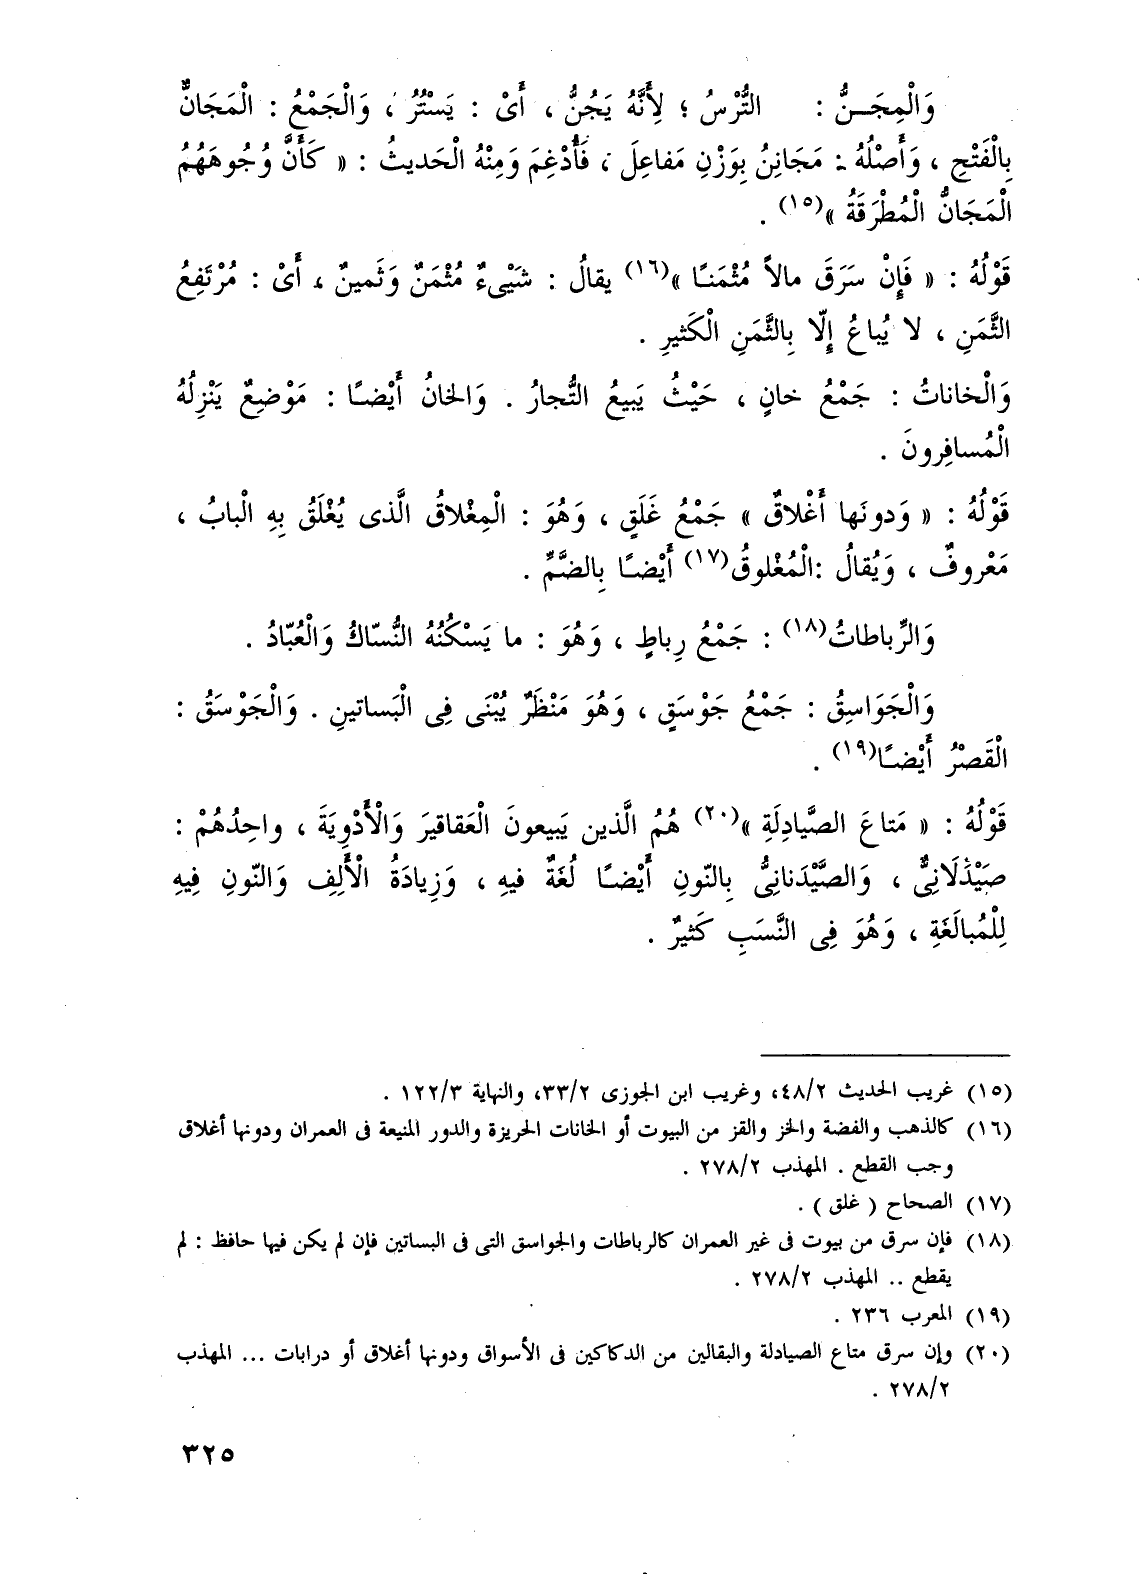 وَالْمِجَـــنُّ : التُّرْسُ ؛ لِأَنَّهُ يَجُنُّ ، أَىْ : يَسْتُرُ ، وَالْجَمْعُ : الْمَجَانُّ
بِالْفَتْحِ ، وَأَصْلُهُ : مَجَانِنُ بِوَزْنِ مَفاعِلَ ، فَأُدْغِمَ وَمِنْهُ الْحَديثُ : « كَأَنَّ وُجُوهَهُمُ
الْمَجَانُّ الْمُطْرَقَةُ »(١٥) .
قَوْلُهُ : « فَإِنْ سَرَقَ مالاً مُثْمَنًا »(١٦) يقالُ : شَيْىءٌ مُثْمَنٌ وَثَمينٌ ، أَىْ : مُرْتَفِعُ
الثَّمَنِ ، لا يُباعُ إِلّا بِالثَّمَنِ الْكَثيرِ .
وَالْخاناتُ : جَمْعُ خانٍ ، حَيْثُ يَبيعُ التُّجارُ . وَالخانُ أَيْضًا : مَوْضِعٌ يَنْزِلُهُ
الْمُسافِرونَ .
قَوْلُهُ : « وَدونَها أَغْلاقٌ » جَمْعُ غَلَقٍ ، وَهُوَ : الْمِغْلاقُ الَّذى يُغْلَقُ بِهِ الْبابُ ،
مَعْروفٌ ، وَيُقالُ :الْمُغْلوقُ(١٧) أَيْضًا بِالضَّمِّ .
وَالرِّباطاتُ(١٨) : جَمْعُ رِباطٍ ، وَهُوَ : ما يَسْكُنُهُ النُّسّاكُ وَالْعُبّادُ .
وَالْجَوَاسِقُ : جَمْعُ جَوْسَقٍ ، وَهُوَ مَنْظَرٌ يُبْنَى فِى الْبَساتينِ . وَالْجَوْسَقُ :
الْقَصْرُ أَيْضًا(١٩) .
قَوْلُهُ : « مَتاعَ الصَّيادِلَةِ »(٢٠) هُمُ الَّذين يَبيعونَ الْعَقاقيرَ وَالْأَدْوِيَةَ ، واحِدُهُمْ :
صَيْدَلَانِىٌّ ، وَالصَّيْدَنانِىُّ بِالنّونِ أَيْضًا لُغَةٌ فيهِ ، وَزِيادَةُ الْأَلِفِ وَالنّونِ فِيهِ
لِلْمُبالَغَةِ ، وَهُوَ فِى النَّسَبِ كَثيرٌ .
(١٥) غريب الحديث ٤٨/٢، وغريب ابن الجوزى ٣٣/٢، والنهاية ١٢٢/٣ .
(١٦) كالذهب والفضة والخز والقز من البيوت أو الخانات الحريزة والدور المنيعة فى العمران ودونها أغلاق
وجب القطع . المهذب ٢٧٨/٢ .
(١٧) الصحاح ( غلق ) .
(١٨) فإن سرق من بيوت فى غير العمران كالرباطات والجواسق التى فى البساتين فإن لم يكن فيها حافظ : لم
يقطع .. المهذب ٢٧٨/٢ .
(١٩) المعرب ٢٣٦ .
(٢٠) وإن سرق متاع الصيادلة والبقالين من الدكاكين فى الأسواق ودونها أغلاق أو درابات ... المهذب
٢٧٨/٢ .
٣٢٥